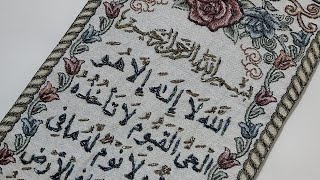 بسم الله الرحمن الرحيم
الله لا إله إلا هو
الحي القيوم لا تأخذه
ولا نوم له ما في
الأرض